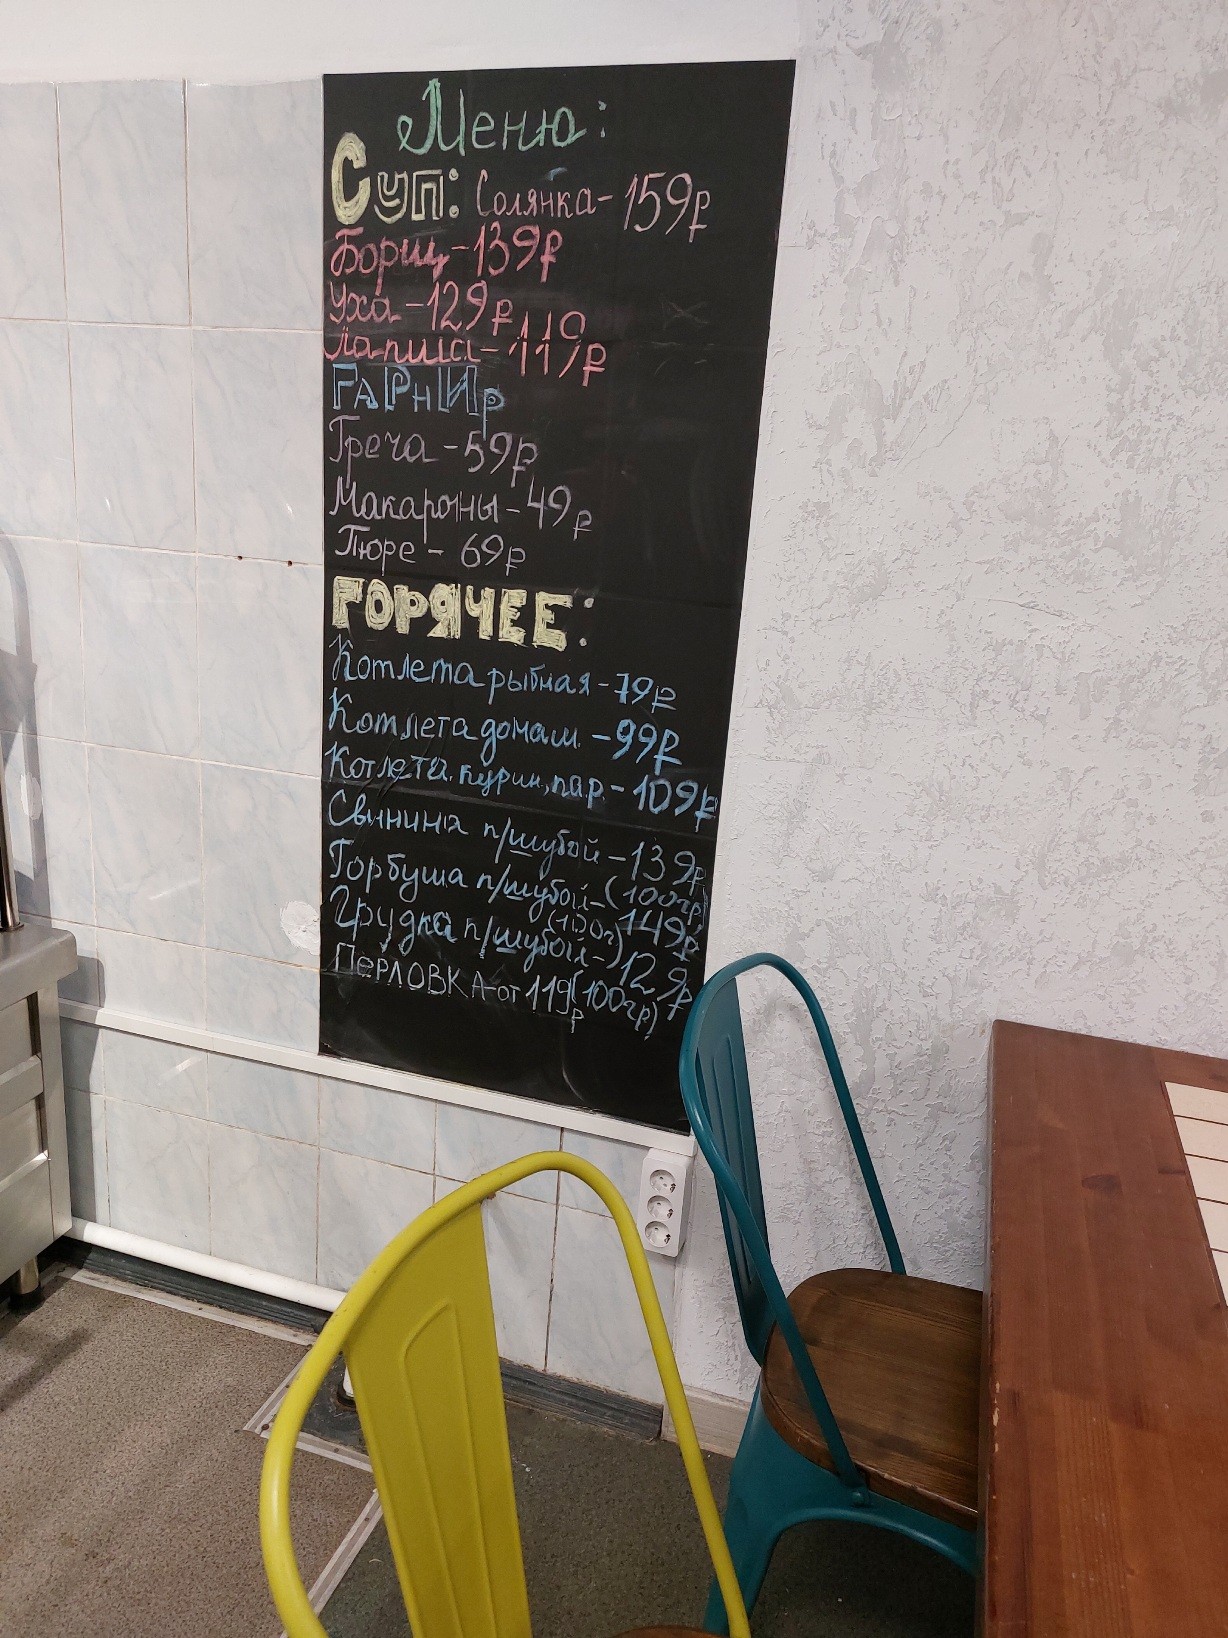 Меню:
Суп: Солянка - 159₽
Борщ - 139₽
Уха - 129₽
Лапша - 119₽
ГАРНИР
Греча - 59₽
Макароны - 49₽
Пюре - 69₽
ГОРЯЧЕЕ:
Котлета рыбная - 79₽
Котлета домаш. - 99₽
Котлета. курин, пар. - 109₽
Свинина п/шубой - 139₽
(100гр)
Горбуша п/шубой - 149₽
(100г)
Грудка п/шубой - 129₽
Перловка - от 119₽ (100гр)